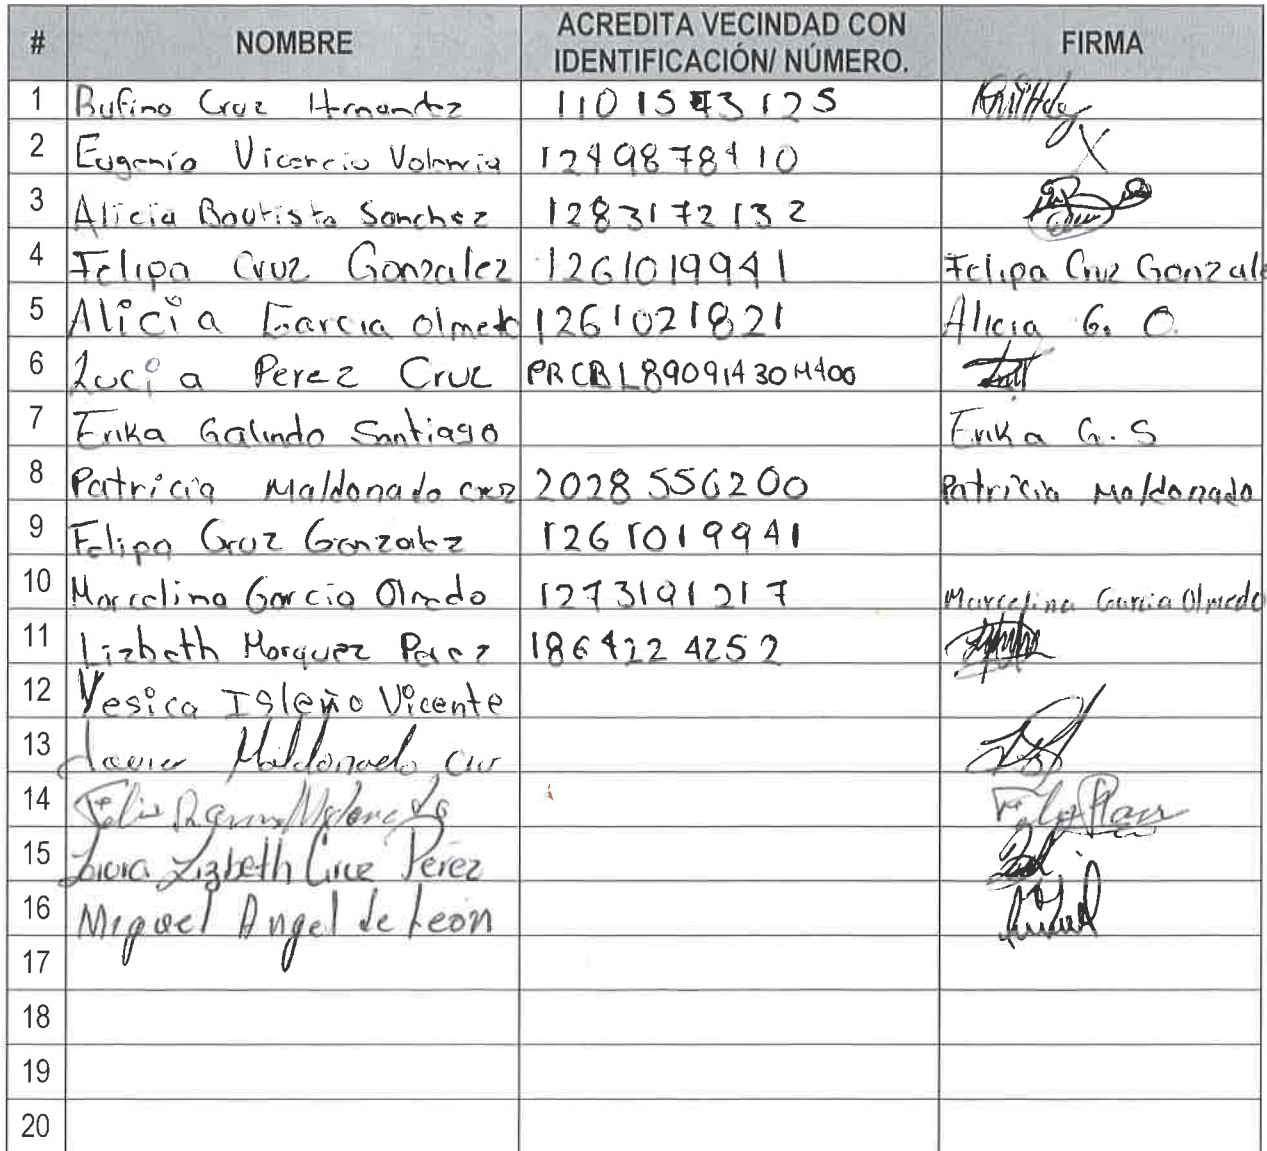 # NOMBRE ACREDITA VECINDAD CON IDENTIFICACIÓN/ NÚMERO. FIRMA
1 Rufino Cruz Hrnandez 1101543125
2 Eugenio Vicencio Valencia 1249878410 X
3 Alicia Bautista Sanchez 1283172132
4 Felipa Cruz Gonzalez 1261019941 Felipa Cruz Gonzale
5 Alicia Garcia Olmedo 1261021821 Alicia G. O.
6 Lucia Perez Cruz PRCRL89091430M400
7 Erika Galindo Santiago Erika G. S
8 Patricia Maldonado cruz 2028556200 Patricia Maldonado
9 Felipa Cruz Gonzalez 1261019941
10 Marcelina Garcia Olmedo 1273191217 Marcelina Garcia Olmedo
11 Lizbeth Marquez Perez 1864224252
12 Yesica Isleño Vicente
13 Javier Maldonado
14 Felix
15 Laura Lizbeth Cruz Pérez
16 Miguel Angel de León
17
18
19
20